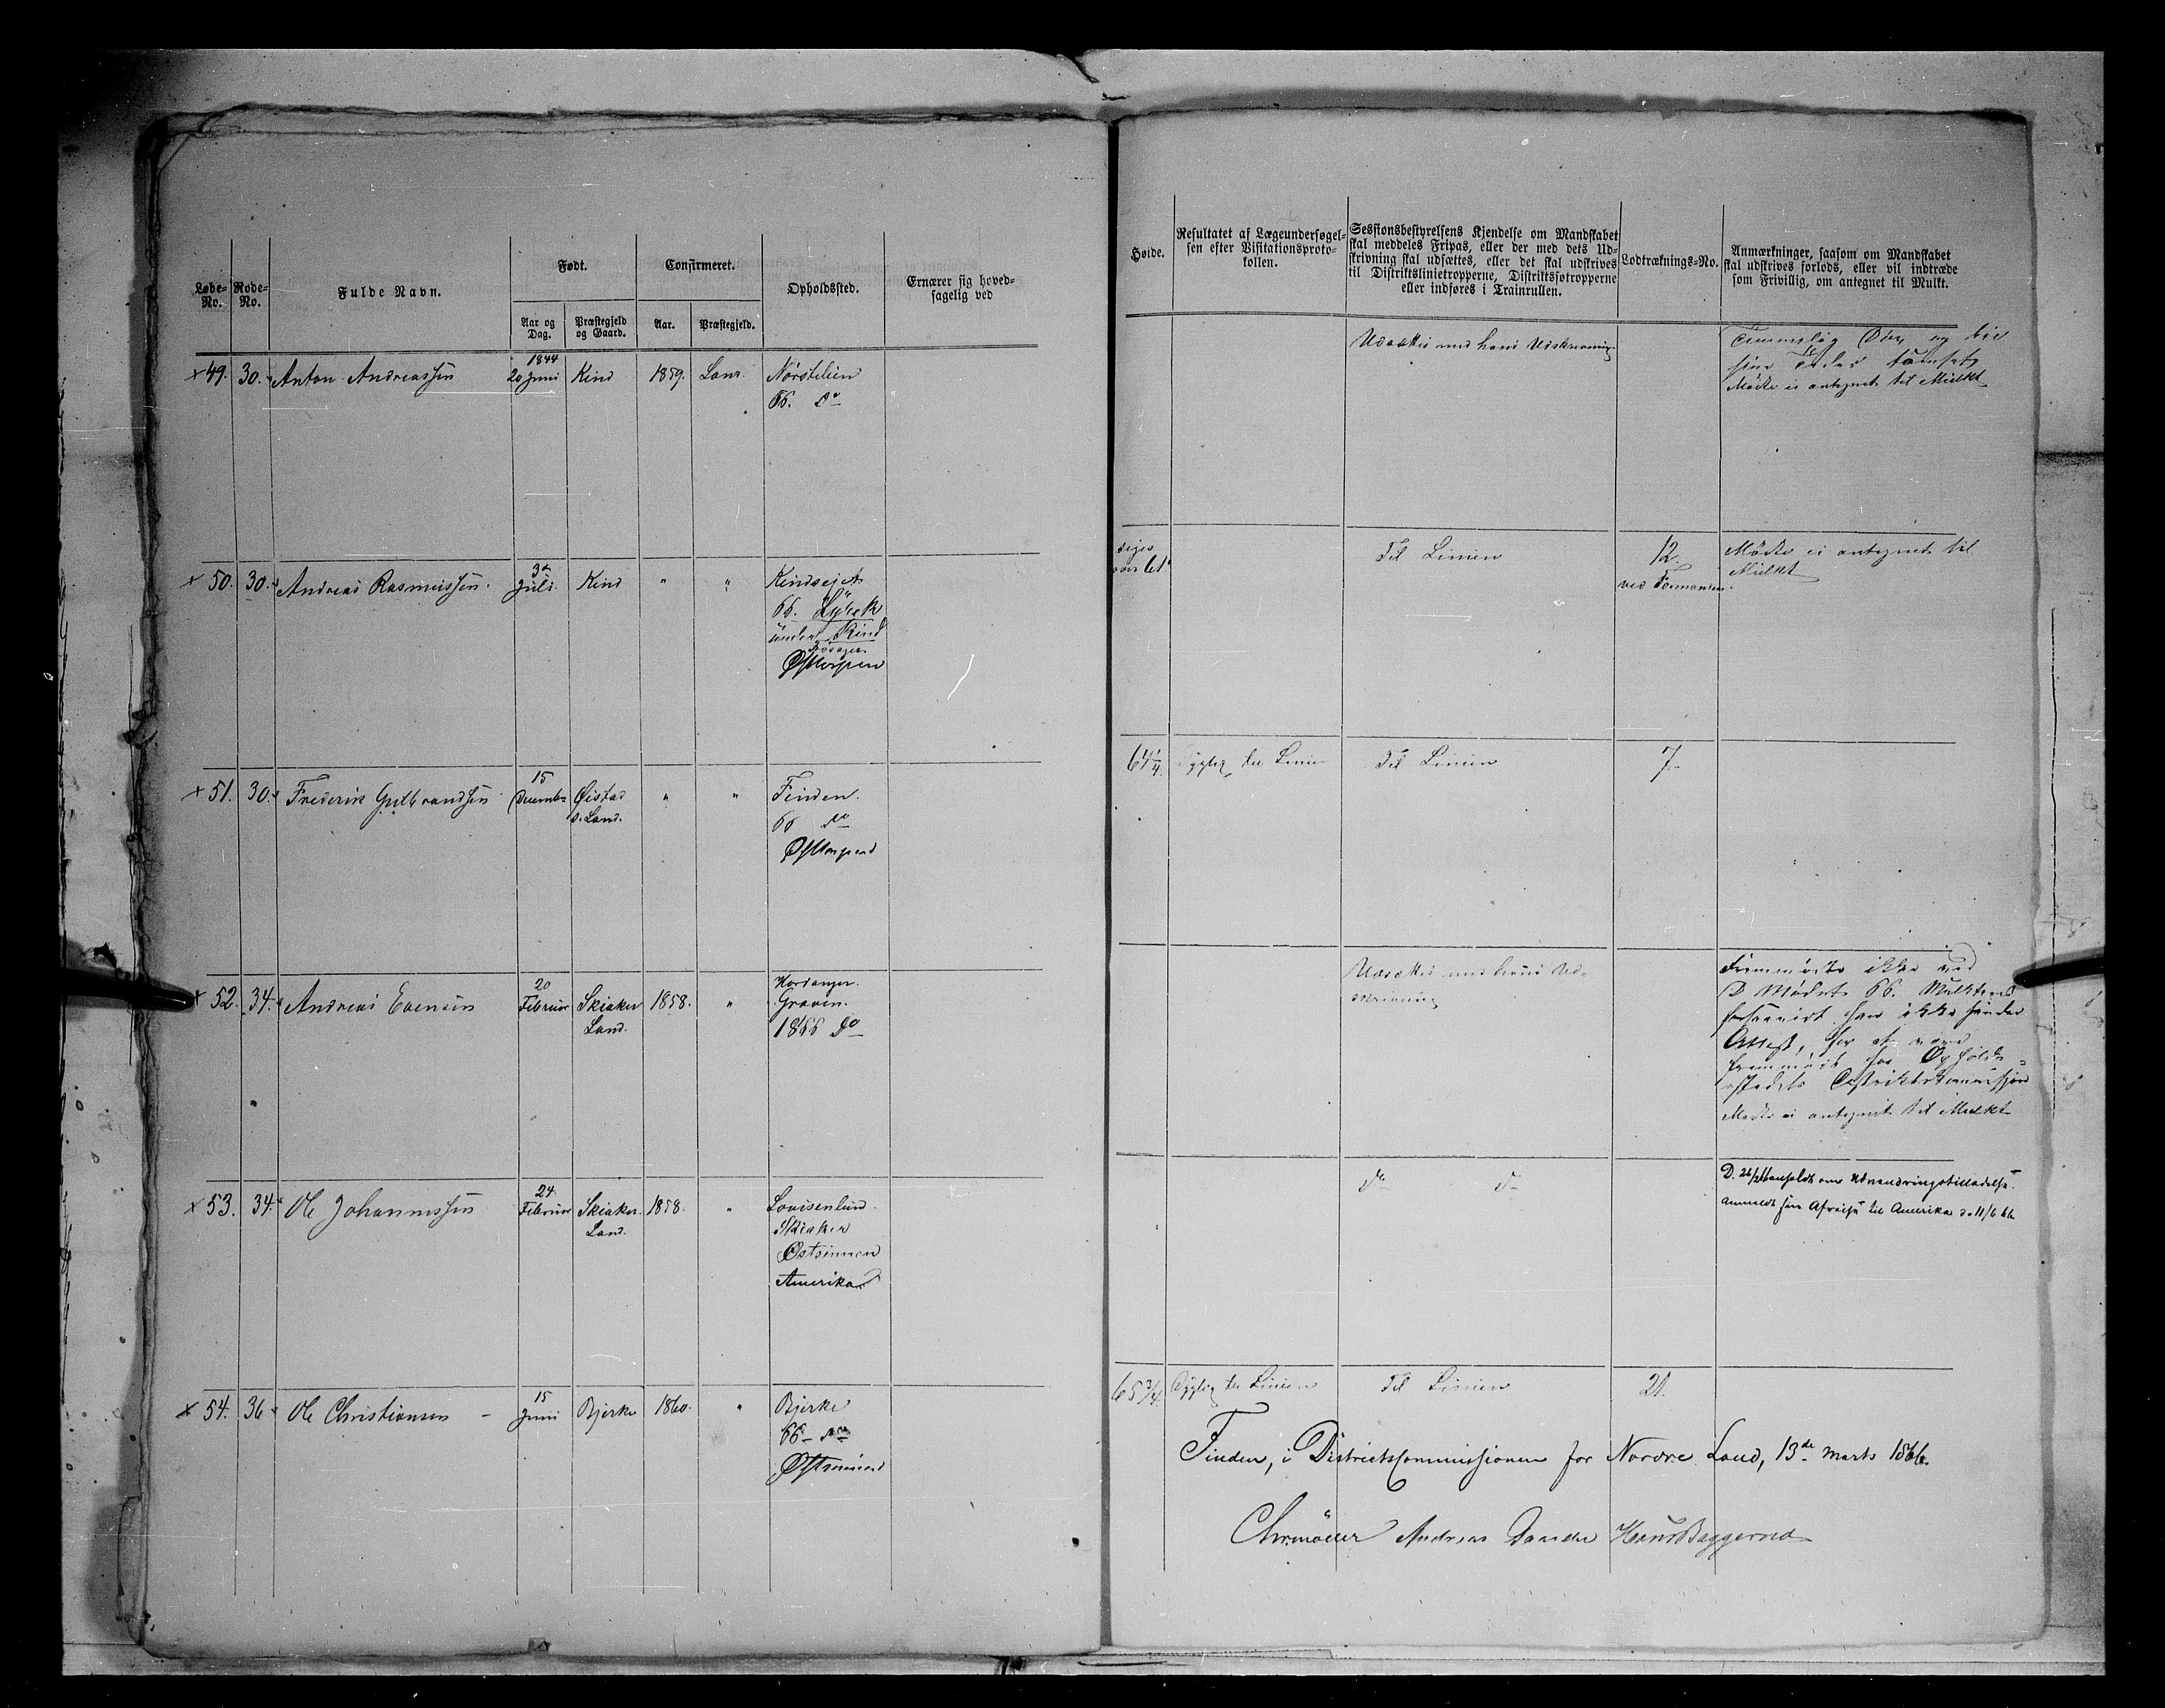 Løbe-No.
Rode-No.
Fulde Navn.
Født.
Aar og Dag.
Præstegjeld og Gaard.
Confirmeret.
Aar.
Præstegjeld.
Opholdssted.
Ernærer sig hovedsagelig ved
Høide.
Resultatet af Lægeundersøgel-
sen efter Visitationsproto-
kollen.
Sessionsbestyrelsens Kjendelse om Mandskabet
skal meddeles Fripas, eller der med dets Ud-
skrivning skal udsættes, eller det skal udskrives
til Distriktslinietropperne, Distriktssøtropperne
eller indføres i Trainrullen.
Lodtræknings-No.
Anmærkninger, saasom om Mandskabet
skal udskrives forlods, eller vil indtræde
som Frivillig, om antegnet til Mulkt.
× 49. 30. Anton Andreassen 1844 20 Juni Kind 1859. Land
66. do
Udsættes med hans Udskrivning
Mødte ei antegnet til Mulkt
× 50. 30. Andreas Rasmussen. Juli Kind " "
66.
under Kind
Østtorpen
61
Til Linien
12.
ved Formanden.
Mødte ei antegnet til
Mulkt
× 51. 30. Frederik Gulbrandsen 15 December Øistad " " Finden.
S. Land.
66 do
Østtorpen
64 1/4 Dygtig til Linien Til Linien 7.
× 52. 34. Andreas Evensen 20 Februar Skiaker Land. 1858. "
Hardanger.
Graven.
1866 do
Udsættes med hans Ud-
skrivning
Fremmødte ikke ved
Mødet 66.
ikke
Attest, for at være
fremmødt for Opholds-
stedets
Mødte ei antegnet til Mulkt
× 53. 34. Ole Johannessen 24 Februar Skiaker. Land. 1858. "
Lovisenlund.
Skiaker
Østsinnen
Amerika
do do
om Udvandringstilladelse.
anmeldt sin Afreise til Amerika d. 11/6 66
× 54. 36 Ole Christiansen - 15 Juni Bjerke 1860. " Bjerke
66 do
Østsinnen
65 3/4. Dygtig til Linien Til Linien 21.
Finden, i Districtscommissionen for Nordre Land, 13de Marts 1866.
Andreas Hans Baggerud